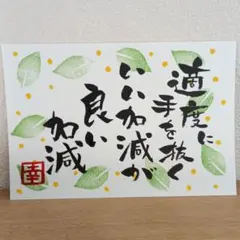 適度に
手を抜く
いい加減が
良い
加減